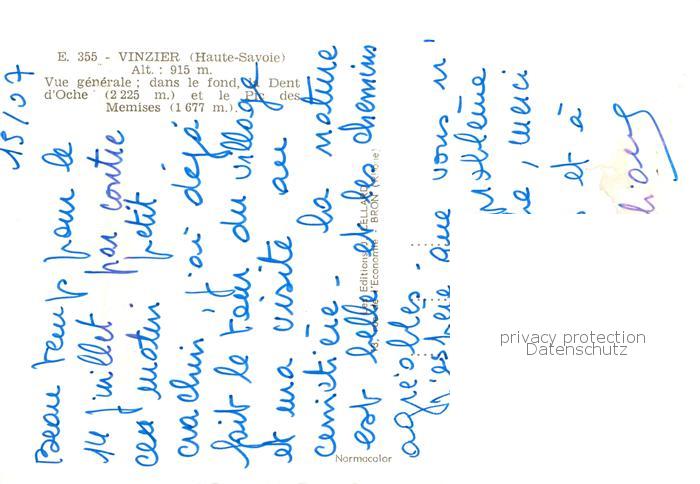 E. 355 - VINZIER (Haute-Savoie)
Alt. : 915 m.
Vue générale ; dans le fond, la Dent
d'Oche (2 225 m.) et le Pic des
Memises (1 677 m.).
15/07
Beau temps pour le
14 Juillet par contre
ce matin petit
crachin, j'ai déjà
fait le tour du village
et ma visite au
cimetière - la nature
est belle et les chemins
agréables.
j'espère que vous n'
problème
, merci
et à
Les Editions
BRON (Rhône)
Normacolor
privacy protection
Datenschutz